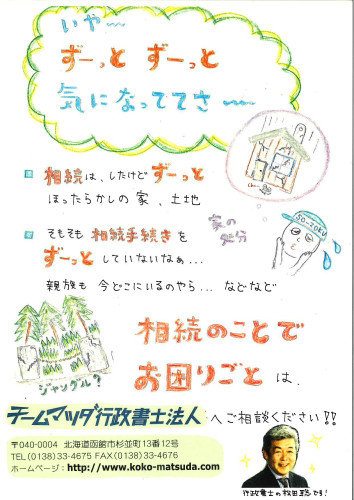 いや〜
ずーっと ずーっと
気になっててさ〜
相続は、したけど ずーっと
ほったらかしの 家、土地
家の
処分
SO-ZOKU
そもそも 相続手続きを
ずーっと していないなぁ...
親族も 今どこにいるのやら... などなど
ジャングル?
相続のことで
お困りごとは、
チームマツダ行政書士法人 へご相談ください!!
〒040-0004 北海道函館市杉並町13番12号
TEL(0138)33-4675 FAX(0138)33-4676
ホームページ：http://www.koko-matsuda.com
行政書士の松田聡です!